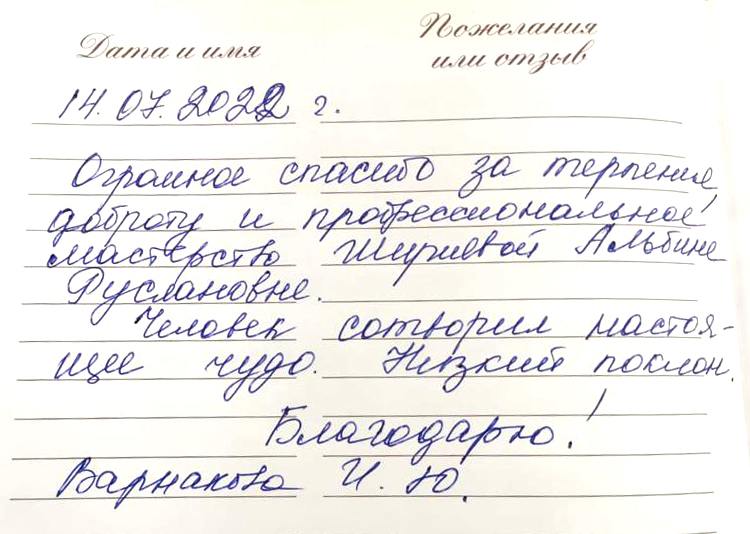 Дата и имя
Пожелания
или отзыв
14.07.2022 г.
Огромное спасибо за терпение,
доброту и профессиональное
мастерство Альбине
Руслановне.
Человек сотворил настоя-
щее чудо. Низкий поклон.
Благодарю!
Варнакова И. Ю.